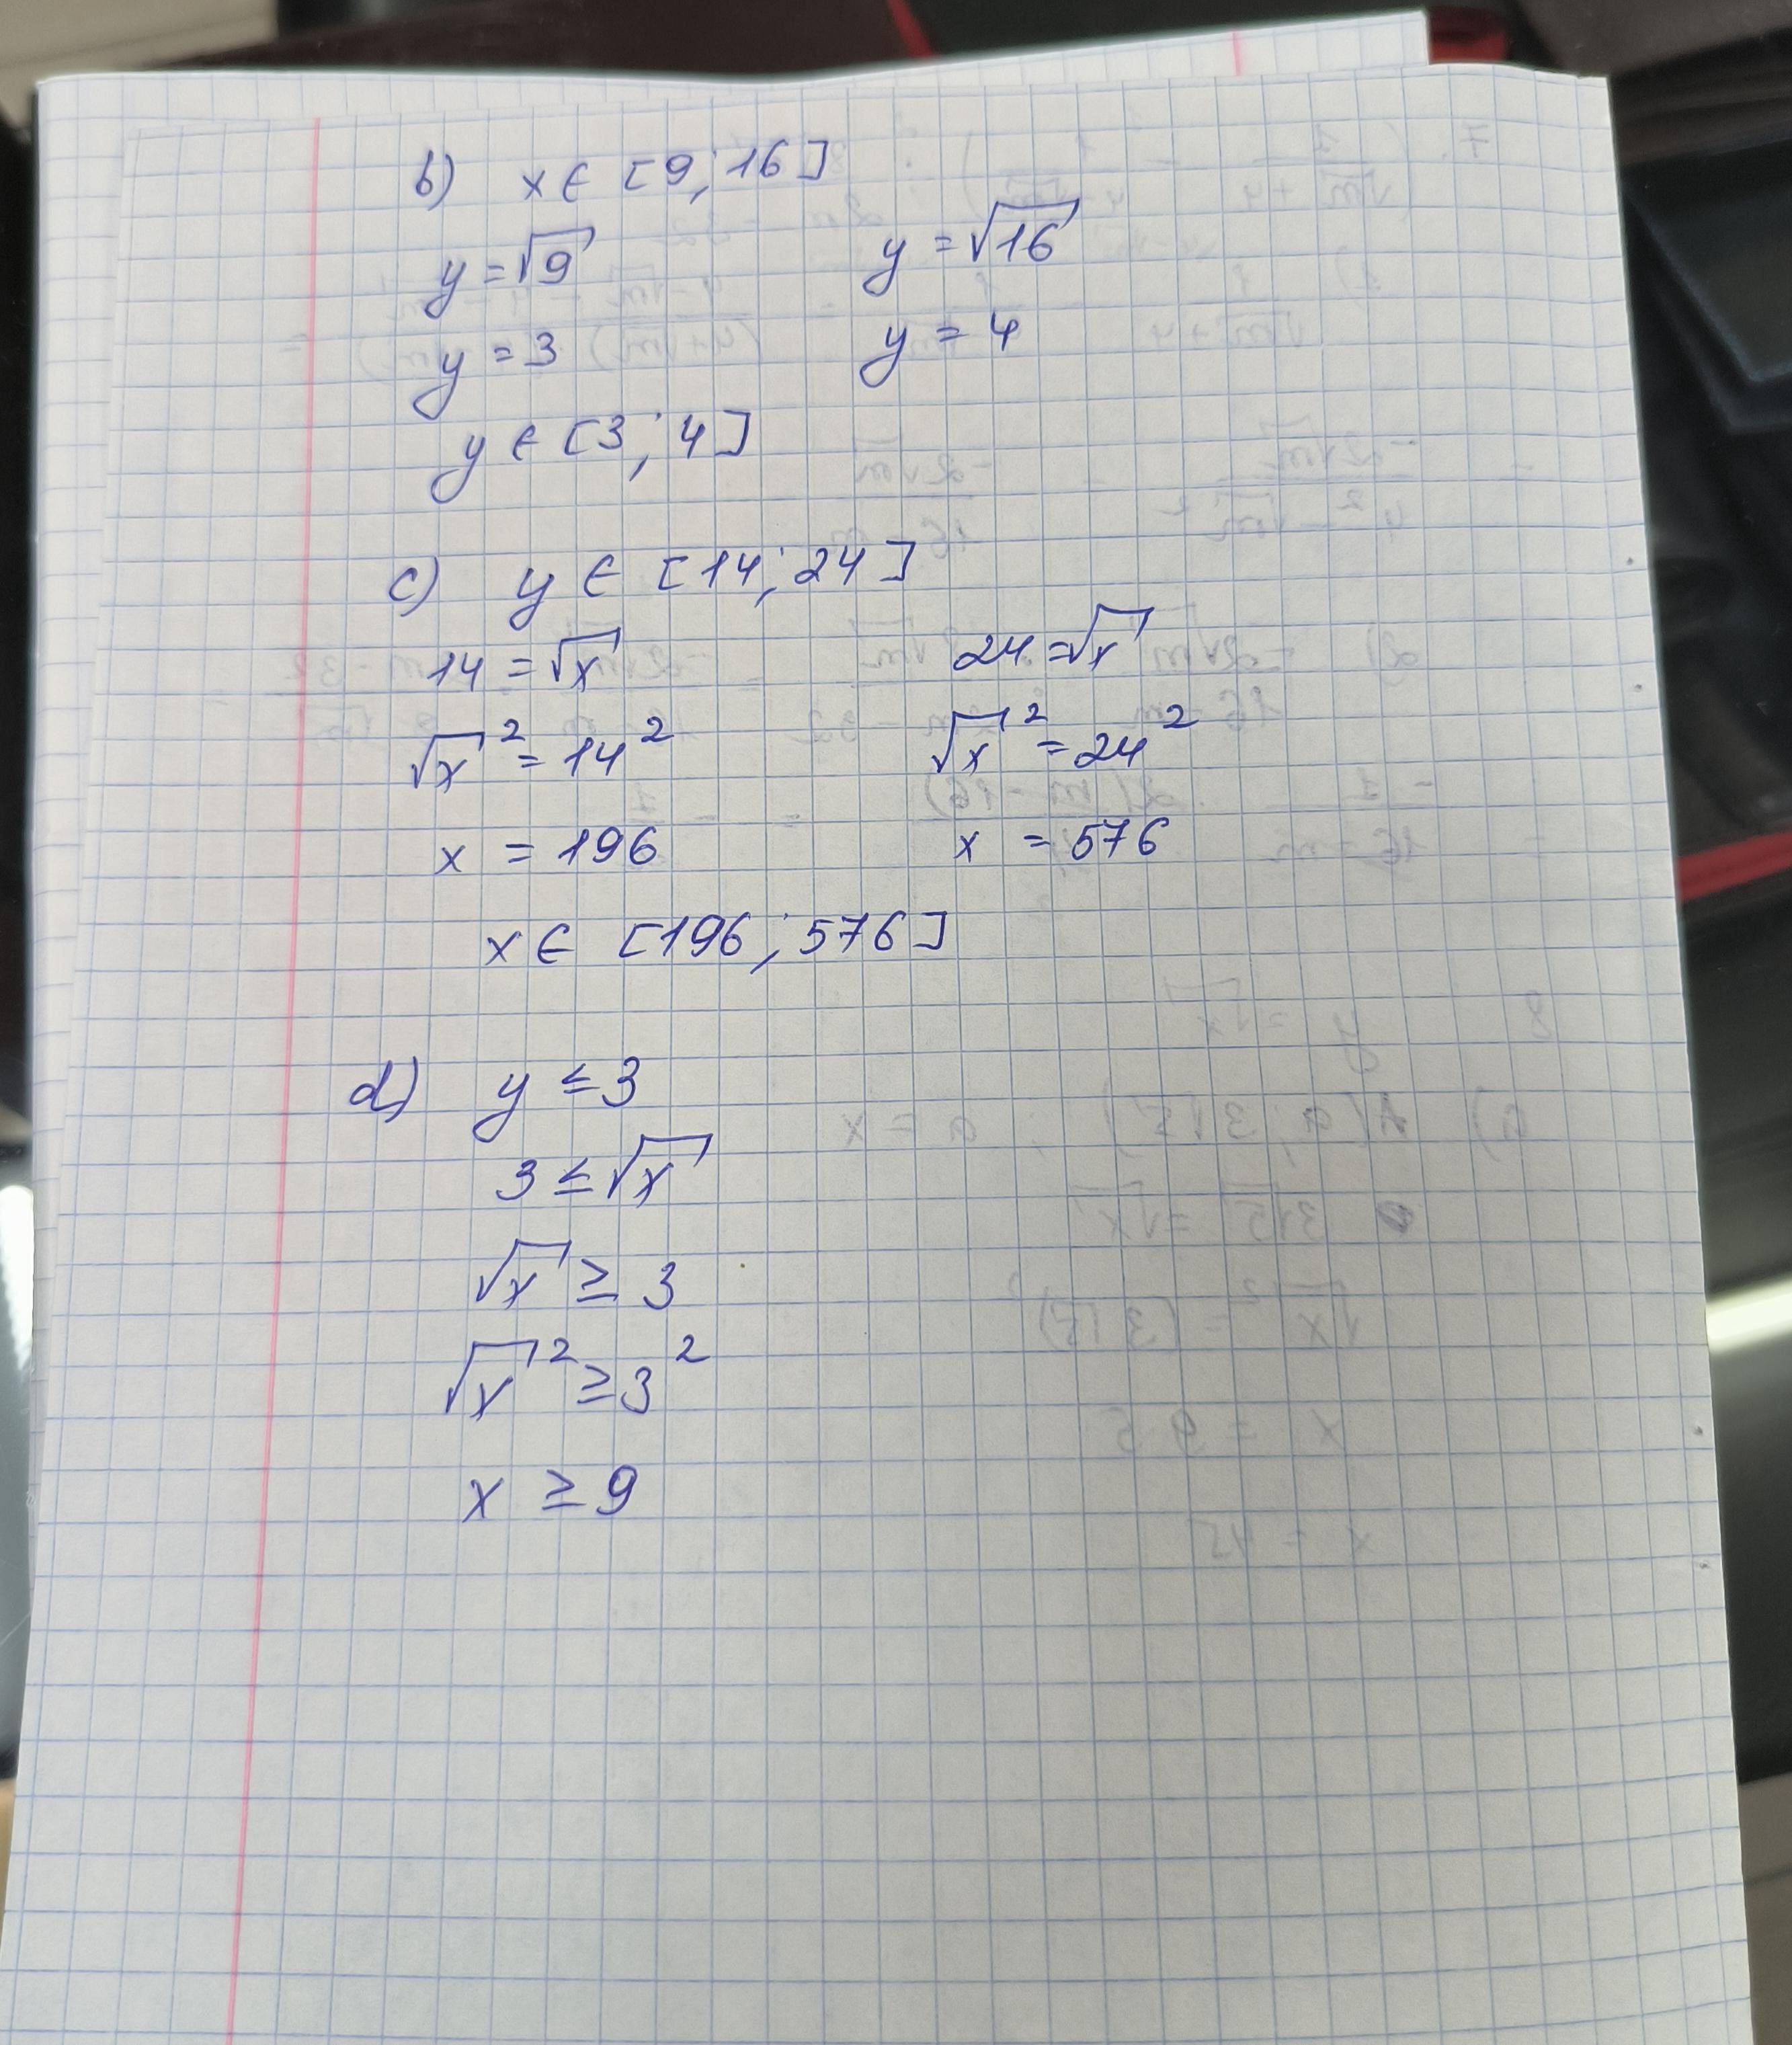 b) x ∈ [9; 16]
y = √9 y = √16
y = 3 y = 4
y ∈ [3; 4]
c) y ∈ [14; 24]
14 = √x 24 = √x
√x² = 14² √x² = 24²
x = 196 x = 576
x ∈ [196; 576]
d) y ≤ 3
3 ≤ √x
√x ≥ 3
√x² ≥ 3²
x ≥ 9